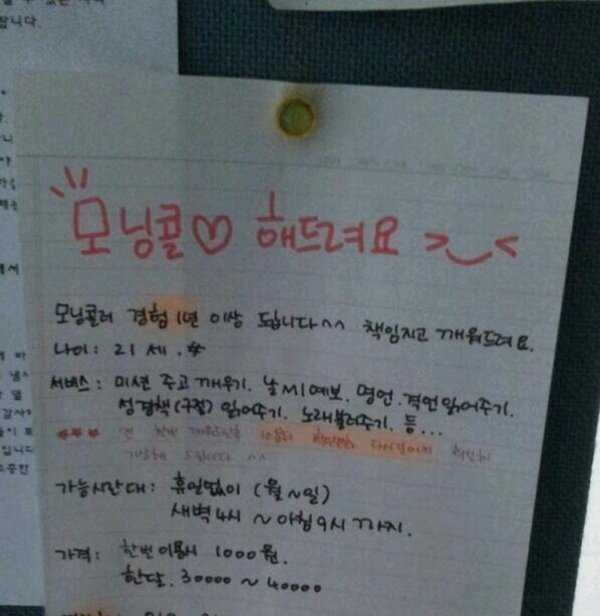 모닝콜♡ 해드려요 >‿<
모닝콜러 경험 1년 이상 됩니다^^ 책임지고 깨워드려요.
나이 : 21세.
서비스 : 미션 주고 깨우기. 날씨예보. 명언.격언 읽어주기.
성경책(구절) 읽어주기. 노래불러주기. 등...
가능시간대 : 휴일없이 (월~일)
새벽 4시 ~ 아침 9시 까지.
가격 : 한번 이용시 1000원.
한달. 30000 ~ 40000